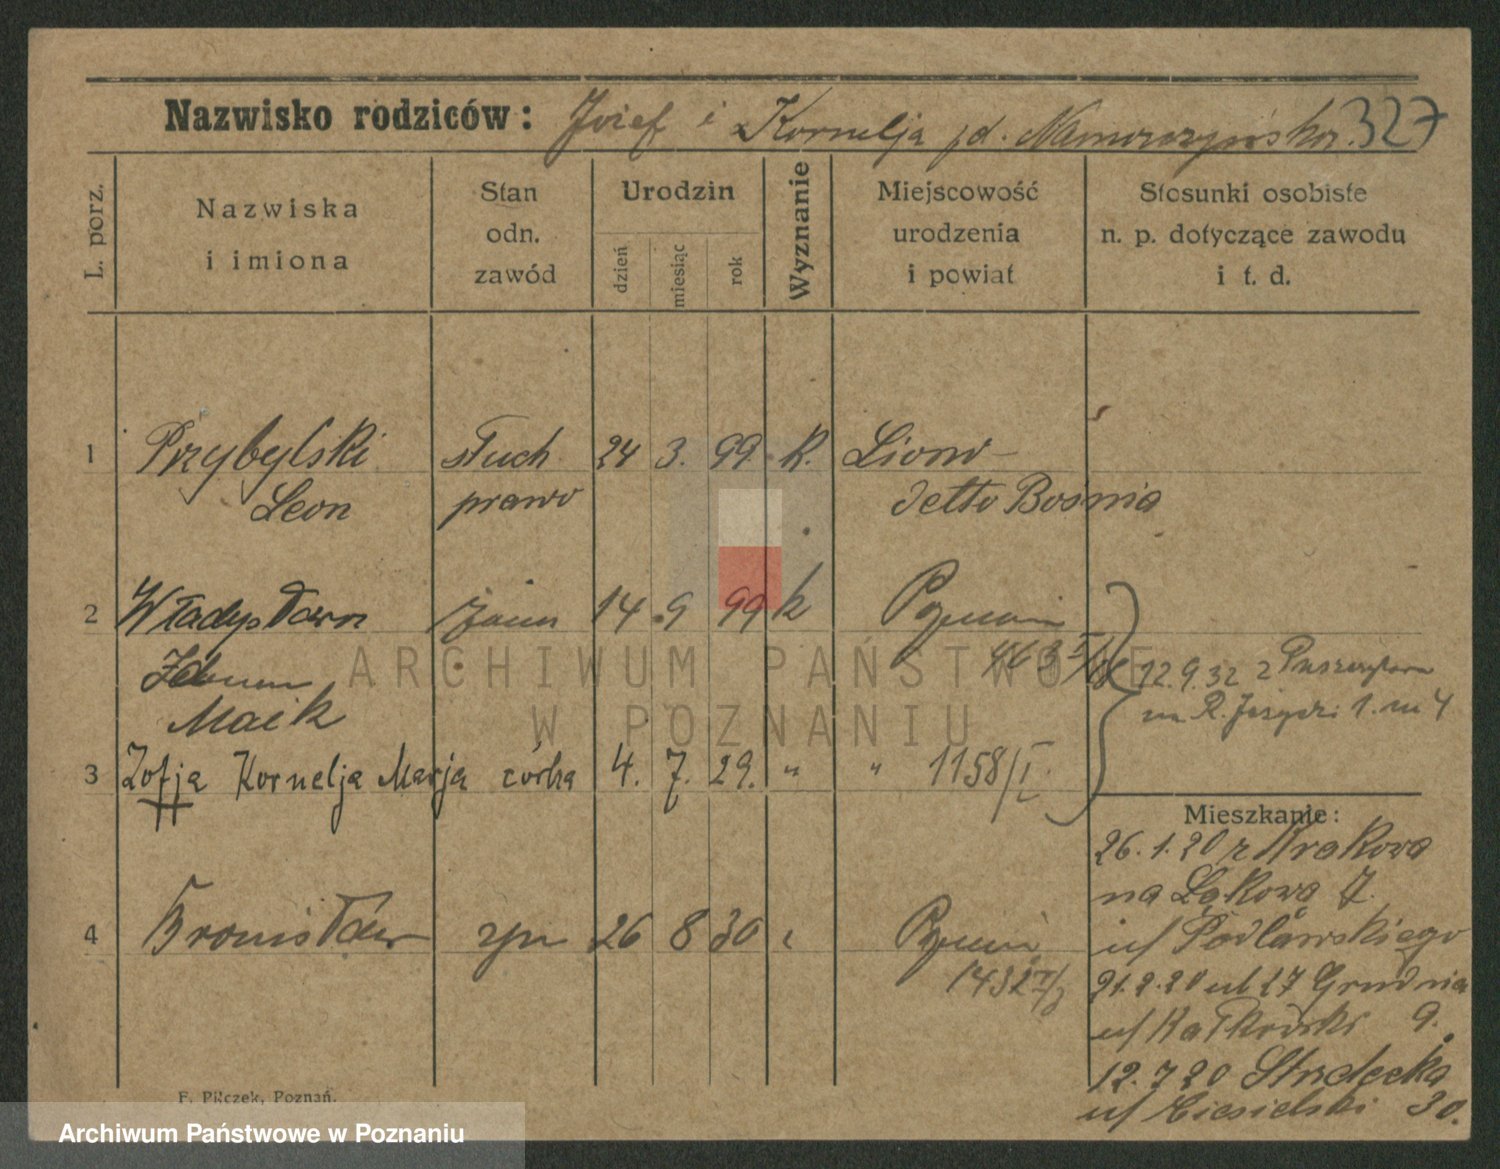 Nazwisko rodziców: Józef i Kornelja zd. 327
L. porz.
Nazwiska
i imiona
Stan
odn.
zawód
Urodzin
dzień
miesiąc
rok
Wyznanie
Miejscowość
urodzenia
i powiat
Stosunki osobiste
n. p. dotyczące zawodu
i t. d.
1 Przybylski słuch. 24 3. 99. k.
Leon prawo detto Bosnia
2 Władysława żona 14 9 99 k Poznań
463
12.9.32 z
Maik
na R. 1. m 4
3 Zofja Kornelja Marja córka 4. 7. 29. " " 1158/I
Mieszkanie:
26.1.20 z Krakowa
na Łąkowa 7.
4 Bronisław syn 26 8 30 Poznań
u/ Podlawskiego
1432
21.2.20 ul 27 Grudnia
u/ Ratkowski 9.
12.7.20 Strzelecka
u/ Ciesielski 30.
F. Pilczek, Poznań.
ARCHIWUM PAŃSTWOWE
W POZNANIU
Archiwum Państwowe w Poznaniu